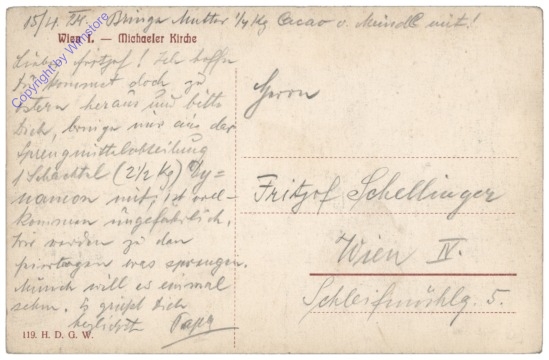 15/4. Bringe Mutter 1/4 Kg Cacao v. Meindl mit!
Wien I. — Michaeler Kirche
Copyright by Wanstore
Lieber Fritjof! Ich hoffe
Du kommst doch zu
Ostern heraus und bitte
Dich, bringe mir aus der
Sprengmittelabteilung
1 Schachtel (2 1/2 Kg) Dy=
namon mit, ist voll-
kommen ungefährlich.
Wir werden zu den
was sprengen.
will es einmal
sehen. Es grüßt Dich
herzlichst Papa
119. H. D. G. W.
Herrn
Fritjof Schellinger
Wien IV.
Schleifmühlg. 5.